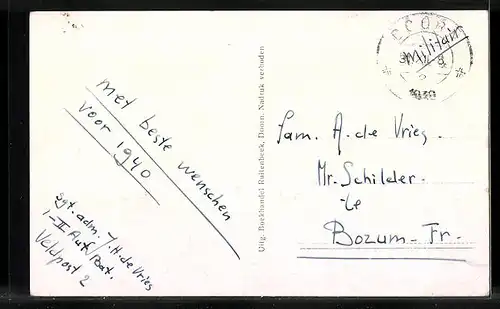 Met beste wenschen
voor 1940
Sgt. adm. J. H. de Vries
1-II Auf. Bat.
Veldpost 2
Uitg. Boekhandel Ruitenbeek, Doorn. Nadruk verboden
Militair
1939
Fam. A. de Vries.
Mr. Schilder.
te
Bozum-Fr.